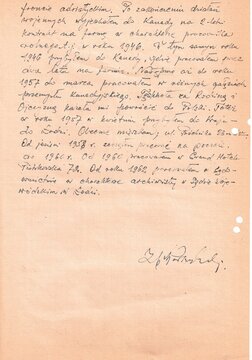 froncie adriatyckim. Po zakończeniu działań
wojennych wyjechałem do Kanady na 2-letni
kontrakt na farmę w charakterze pracownika
w roku 1946. W tym samym roku
1946 przybyłem do Kanady, gdzie pracowałem przez
dwa lata na farmie. Następnie aż do roku
1957 do marca pracowałem w różnych gałęziach
przemysłu kanadyjskiego. Tęsknota za Rodziną i
Ojczyzną kazała mi powrócić do Polski. Także
w roku 1957 w kwietniu przybyłem do Kraju
do Łodzi. Obecnie mieszkam, ul.
Od jesieni 1958 r. zacząłem pracować na poczcie
do 1960 r. Od 1960 pracowałem w Grand Hotelu
Piotrkowska 72. Od roku 1962 pracowałem w Sądo-
wnictwie w charakterze archiwisty w Sądzie Woje-
wódzkim w Łodzi.